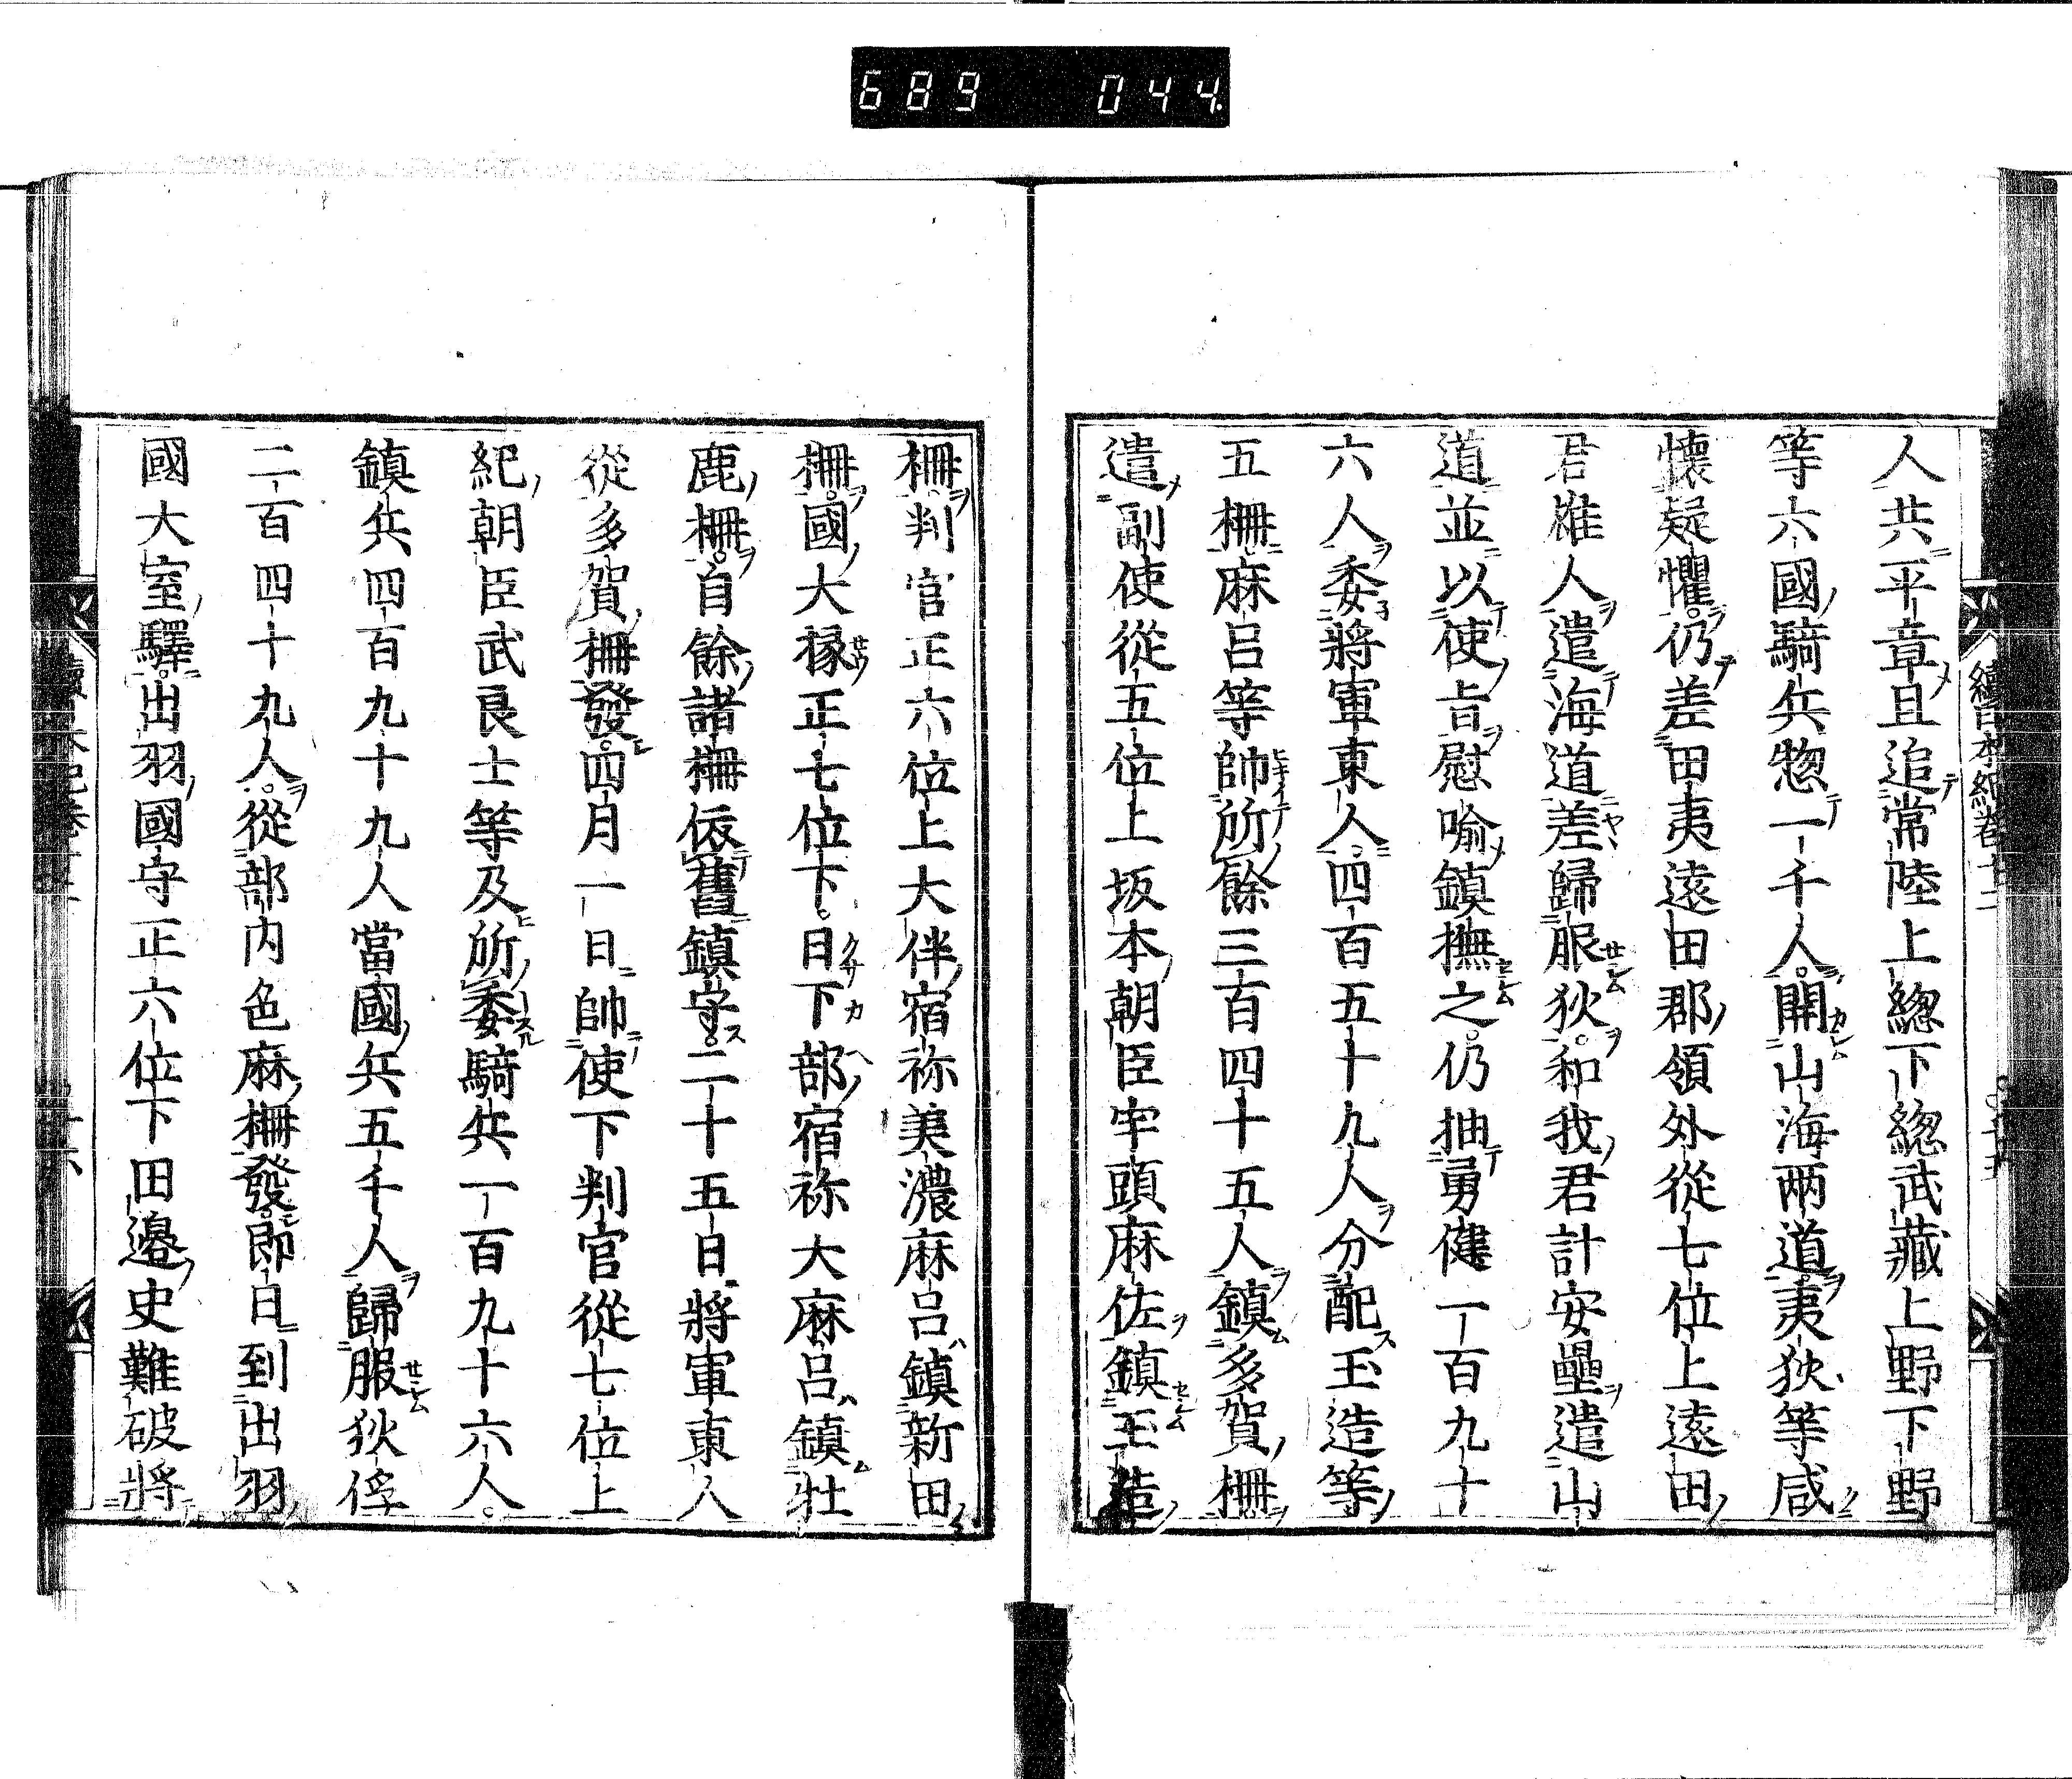 689 044
人共平章且追常陸上總下總武藏上野下野
等六國騎兵惣一千人開山海兩道夷狄等咸
懷疑懼仍差田夷遠田郡領外從七位上遠田
君雄人遣海道差歸服狄和我君計安壘遣山
道並以使旨慰喻鎮撫之仍抽勇健一百九十
六人委將軍東人四百五十九人分配玉造等
五柵麻呂等帥所餘三百四十五人鎮多賀柵
遣副使從五位上坂本朝臣宇頭麻佐鎮玉造
柵判官正六位上大伴宿祢美濃麻呂鎮新田
柵國大掾正七位下日下部宿祢大麻呂鎮牡
鹿柵自餘諸柵依舊鎮守二十五日將軍東人
從多賀柵發四月一日帥使下判官從七位上
紀朝臣武良士等及所委騎兵一百九十六人
鎮兵四百九十九人當國兵五千人歸服狄俘
二百四十九人從部内色麻柵發即日到出羽
國大室驛出羽國守正六位下田邊史難破將